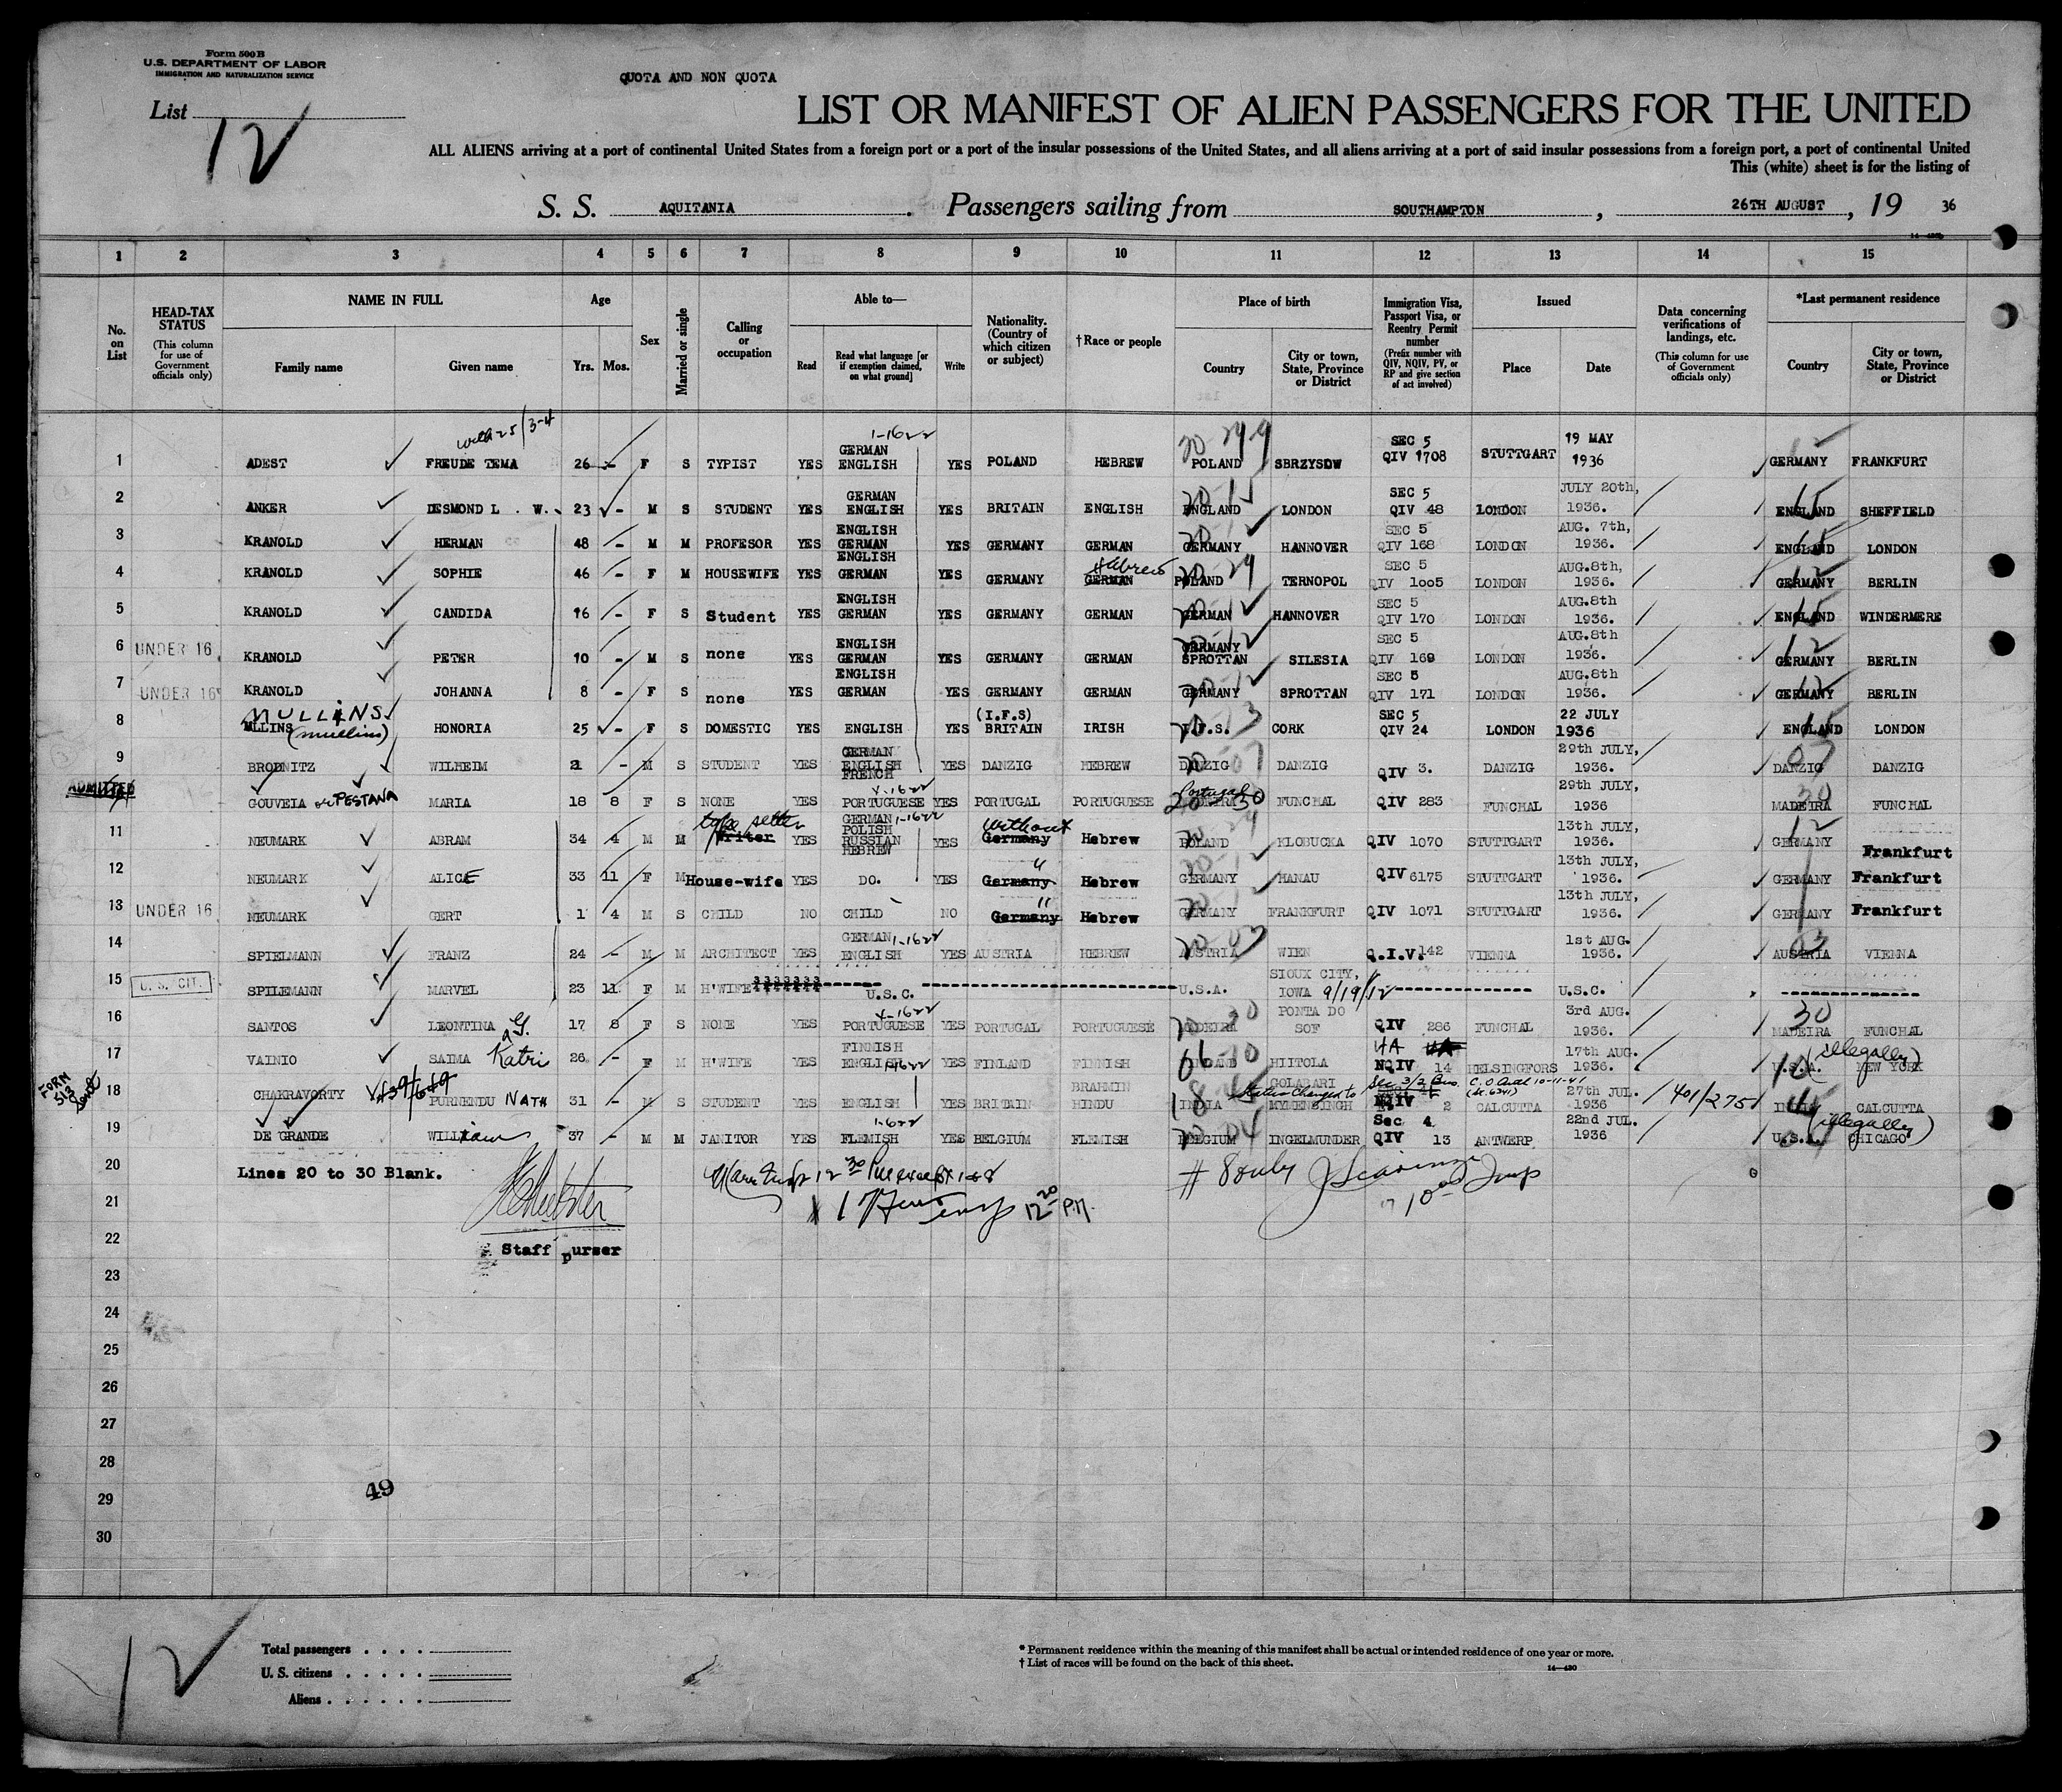 Form 500 B
U.S. DEPARTMENT OF LABOR
IMMIGRATION AND NATURALIZATION SERVICE
QUOTA AND NON QUOTA
List 12
LIST OR MANIFEST OF ALIEN PASSENGERS FOR THE UNITED
ALL ALIENS arriving at a port of continental United States from a foreign port or a port of the insular possessions of the United States, and all aliens arriving at a port of said insular possessions from a foreign port, a port of continental United
This (white) sheet is for the listing of
S. S. AQUITANIA. Passengers sailing from SOUTHAMPTON, 26TH AUGUST, 19 36
1 2 3 4 5 6 7 8 9 10 11 12 13 14 15
No. on List
HEAD-TAX STATUS (This column for use of Government officials only)
NAME IN FULL Family name Given name
Age Yrs. Mos.
Sex
Married or single
Calling or occupation
Able to— Read Read what language [or if exemption claimed, on what ground] Write
Nationality. (Country of which citizen or subject)
†Race or people
Place of birth Country City or town, State, Province or District
Immigration Visa, Passport Visa, or Reentry Permit number (Prefix number with QIV, NQIV, PV, or RP and give section of act involved)
Issued Place Date
Data concerning verifications of landings, etc. (This column for use of Government officials only)
*Last permanent residence Country City or town, State, Province or District
1 ADEST FREUDE TEMA 26 - F S TYPIST YES GERMAN ENGLISH YES POLAND HEBREW POLAND SBRZYSOW SEC 5 QIV 1708 STUTTGART 19 MAY 1936 GERMANY FRANKFURT
2 ANKER DESMOND L . W. 23 - M S STUDENT YES GERMAN ENGLISH YES BRITAIN ENGLISH ENGLAND LONDON SEC 5 QIV 48 LONDON JULY 20th, 1936. ENGLAND SHEFFIELD
3 KRANOLD HERMAN 48 - M M PROFESOR YES ENGLISH GERMAN YES GERMANY GERMAN GERMANY HANNOVER SEC 5 QIV 168 LONDON AUG. 7th, 1936. ENGLAND LONDON
4 KRANOLD SOPHIE 46 - F M HOUSEWIFE YES ENGLISH GERMAN YES GERMANY GERMAN Hebrew POLAND TERNOPOL SEC 5 QIV 1005 LONDON AUG.8th, 1936. GERMANY BERLIN
5 KRANOLD CANDIDA 16 - F S Student YES ENGLISH GERMAN YES GERMANY GERMAN GERMAN HANNOVER SEC 5 QIV 170 LONDON AUG.8th 1936. ENGLAND WINDERMERE
6 UNDER 16 KRANOLD PETER 10 - M S none YES ENGLISH GERMAN YES GERMANY GERMAN GERMANY SPROTTAN SILESIA SEC 5 QIV 169 LONDON AUG.8th 1936. GERMANY BERLIN
7 UNDER 16 KRANOLD JOHANNA 8 - F S none YES ENGLISH GERMAN YES GERMANY GERMAN GERMANY SPROTTAN SEC 5 QIV 171 LONDON AUG.8th 1936. GERMANY BERLIN
8 MULLINS (mullins) HONORIA 25 - F S DOMESTIC YES ENGLISH YES (I.F.S) BRITAIN IRISH I.F.S. CORK SEC 5 QIV 24 LONDON 22 JULY 1936 ENGLAND LONDON
9 BRODNITZ WILHEIM - M S STUDENT YES GERMAN ENGLISH FRENCH YES DANZIG HEBREW DANZIG DANZIG QIV 3. DANZIG 29th JULY, 1936. DANZIG DANZIG
ADMITTED GOUVEIA or PESTANA MARIA 18 8 F S NONE YES PORTUGUESE YES PORTUGAL PORTUGUESE Portugal FUNCHAL QIV 283 FUNCHAL 29th JULY, 1936 MADEIRA FUNCHAL
11 NEUMARK ABRAM 34 4 M M type setter Writer YES GERMAN POLISH RUSSIAN HEBREW YES without Germany Hebrew POLAND KLOBUCKA QIV 1070 STUTTGART 13th JULY, 1936. GERMANY Frankfurt
12 NEUMARK ALICE 33 11 F M House-wife YES DO. YES " Germany Hebrew GERMANY HANAU QIV 6175 STUTTGART 13th JULY, 1936. GERMANY Frankfurt
13 UNDER 16 NEUMARK GERT 1 4 M S CHILD NO CHILD NO " Germany Hebrew GERMANY FRANKFURT QIV 1071 STUTTGART 13th JULY, 1936. GERMANY Frankfurt
14 SPIELMANN FRANZ 24 - M M ARCHITECT YES GERMAN ENGLISH YES AUSTRIA HEBREW AUSTRIA WIEN Q.I.V. 142 VIENNA 1st AUG. 1936. AUSTRIA VIENNA
15 U. S. CIT. SPILEMANN MARVEL 23 11 F M H'WIFE U.S.C. U.S.A. SIOUX CITY, IOWA 9/19/12 U.S.C.
16 SANTOS LEONTINA G. 17 8 F S NONE YES PORTUGUESE YES PORTUGAL PORTUGUESE MADEIRA PONTA DO SOF QIV 286 FUNCHAL 3rd AUG. 1936. MADEIRA FUNCHAL
17 VAINIO SAIMA Katri 26 - F M H'WIFE YES FINNISH ENGLISH YES FINLAND FINNISH FINLAND HIITOLA 4A NQIV 14 HELSINGFORS 17th AUG. 1936. U.S.A. (illegally) NEW YORK
FORM 513 Sent
18 CHAKRAVORTY PURNENDU NATH 31 - M S STUDENT YES ENGLISH YES BRITAIN BRAHMIN HINDU INDIA GOLABARI MYMENSINGH NQIV 2 CALCUTTA 27th JUL. 1936 401/275 INDIA CALCUTTA
19 DE GRANDE William 37 - M M JANITOR YES FLEMISH YES BELGIUM FLEMISH BELGIUM INGELMUNDER Sec 4 QIV 13 ANTWERP 22nd JUL. 1936 U.S.A. (illegally) CHICAGO
20 Lines 20 to 30 Blank.
21
22 Staff purser
23
24
25
26
27
28
29
30
49
12
Total passengers . . . .
U. S. citizens . . . . .
Aliens . . . . . .
* Permanent residence within the meaning of this manifest shall be actual or intended residence of one year or more.
† List of races will be found on the back of this sheet.
14—430